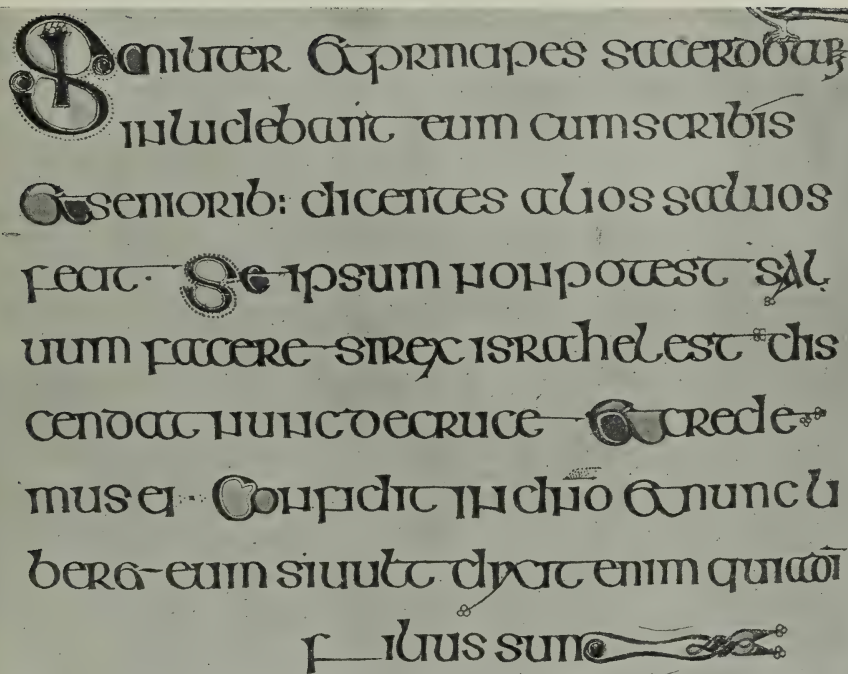 Similiter & principes sacerdotaꝝ
inludebant eum cum scribis
& seniorib: dicentes alios saluos
fecit · Se ipsum non potest sal
uum facere si rex israhel est dis
cendat nunc de cruce & crede
mus ei · Confidit in dn̄o & nunc li
ber&-eum si uult dixit enim quia dī
filius sum